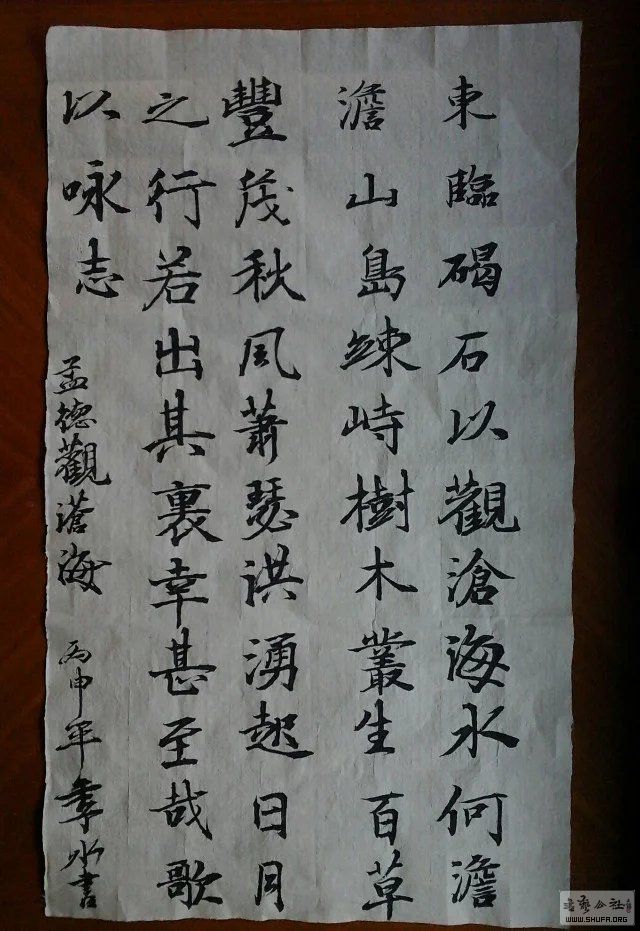 東臨碣石以觀滄海水何澹
澹山島竦峙樹木叢生百草
豐茂秋風蕭瑟洪湧起日月
之行若出其裏幸甚至哉歌
以咏志 孟德觀滄海 丙申年季書
书艺公社
WWW.SHUFA.ORG